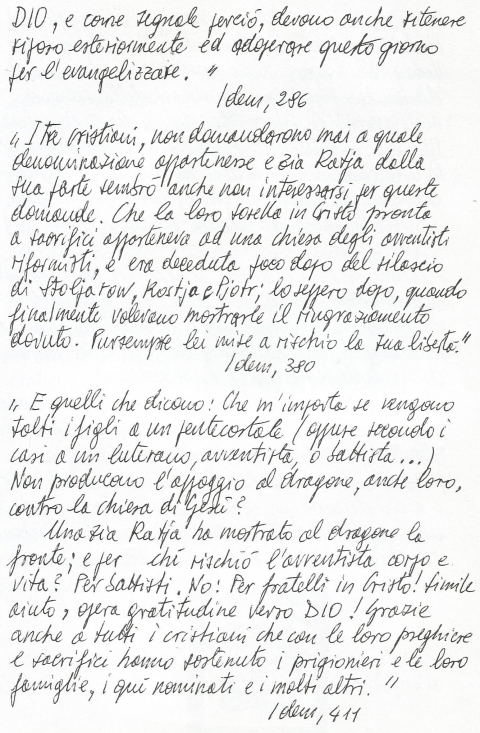 DIO, e come segnale perciò, devono anche ritenere
riposo esteriormente ed adoperare questo giorno
per l'evangelizzare."
Idem, 286
"I tre cristiani, non domandorono mai a quale
denominazione appartenesse e zia Katja dalla
sua parte sembrò anche non interessarsi per queste
domande. Che la loro sorella in Cristo pronta
a sacrifici apparteneva ad una chiesa degli avventisti
riformisti, e era deceduta poco dopo del rilascio
di Stoljarow, Kostja e Pjotr; lo seppero dopo, quando
finalmente volevano mostrarle il ringraziamento
dovuto. Pur sempre lei mise a rischio la sua libertà."
Idem, 380
"E quelli che dicono: Che m'importa se vengono
tolti i figli a un pentecostale (oppure secondo i
casi a un luterano, avventista, o battista...)
Non producono l'appoggio al dragone, anche loro,
contro la chiesa di Gesù?
Una zia Katja ha mostrato al dragone la
fronte; e per chi rischiò l'avventista corpo e
vita? Per battisti. No! Per fratelli in Cristo! Simile
aiuto, opera gratitudine verso DIO! Grazie
anche a tutti i cristiani che con le loro preghiere
e sacrifici hanno sostenuto i prigionieri e le loro
famiglie, i qui nominati e i molti altri."
Idem, 411